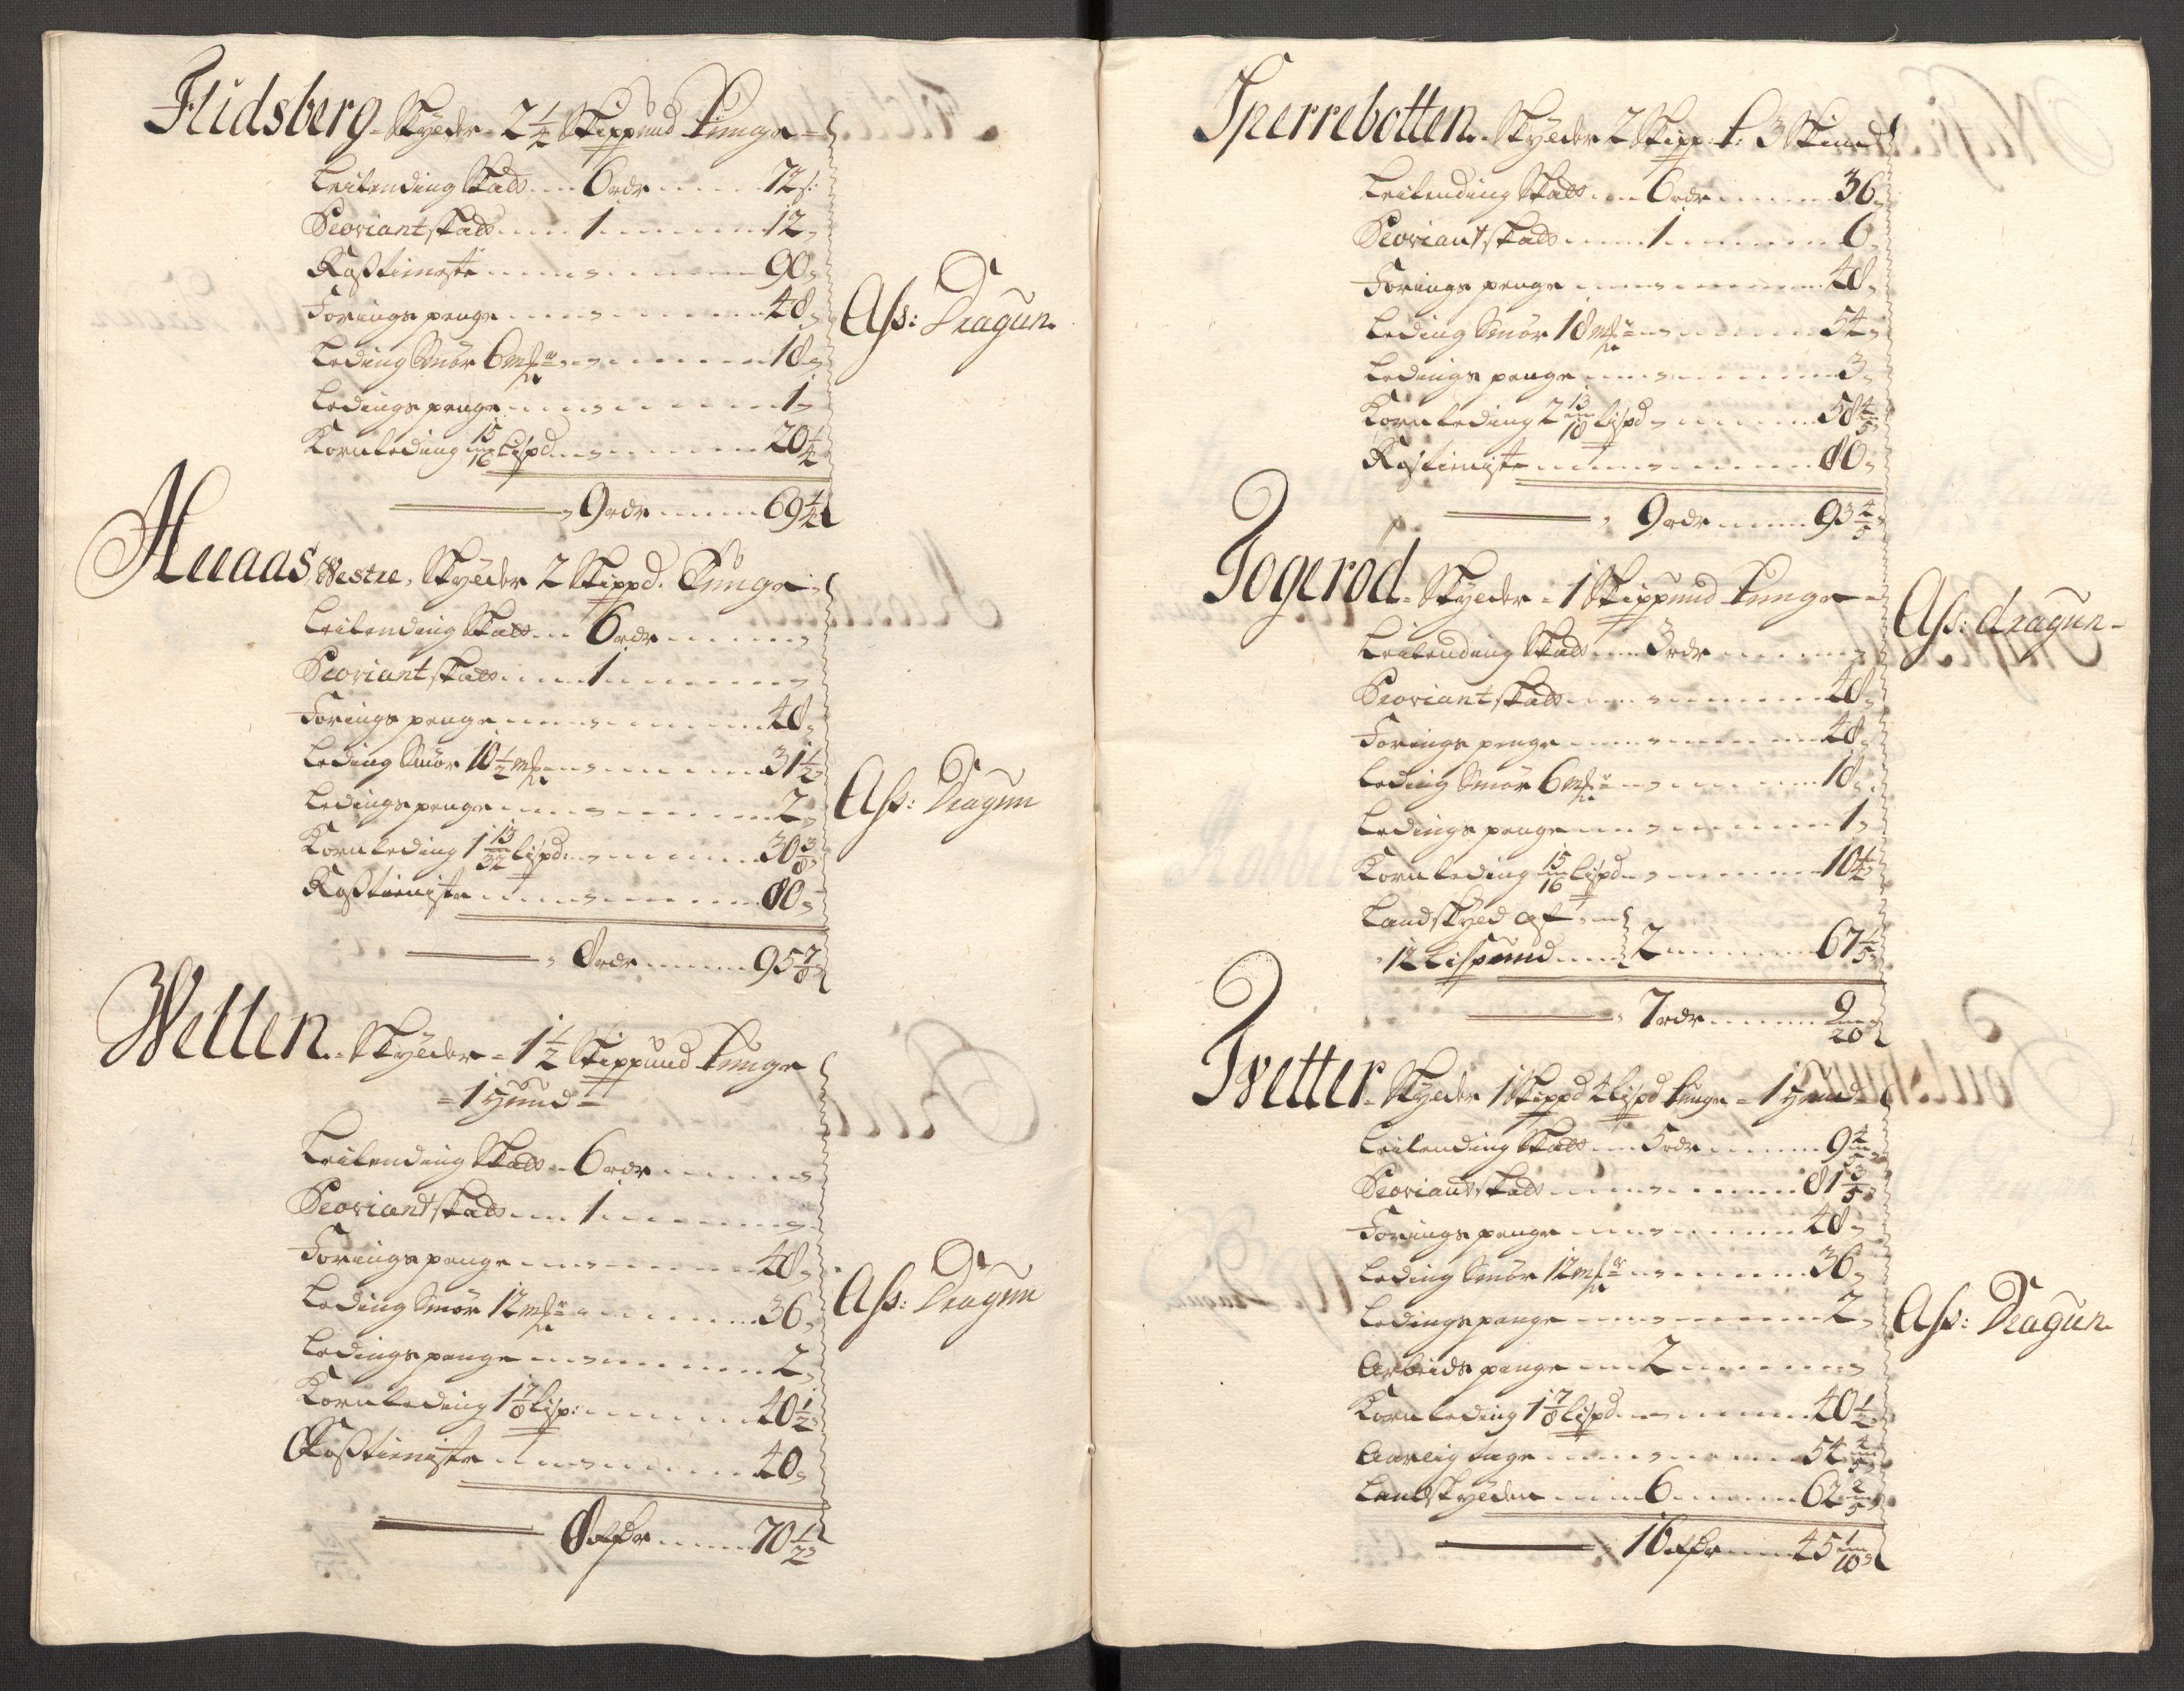 Flidsberg Skylder 2¼ Skippund Tunge
Leilending Skatt 6 rdr 72 s:
Proviantskatt 1 12
Rostieniste 90
Forings penge 48
Leding Smör 6 mkr 18
Ledings penge 1
Kornleding 15/16 Lispd 20¼
9 rdr 69¼
Ass: Dragun
Huaas Vestre, Skylder 2 Skippd. Tunge
Leilending Skatt 6 rdr
Proviantskatt 1
Forings penge 48
Leding Smör 10½ mk 31½
Ledings penge 2
Kornleding 1 13/32 Lispd: 30 3/8
Rostieniste 80
8 rdr 95 7/8
Ass: Dragun
Wetten Skylder 1½ Skippund Tunge
1 hund
Leilending Skatt 6 rdr
Proviantskatt 1
Forings penge 48
Leding Smör 12 mkr 36
Ledings penge 2
Kornleding 1 7/8 Lisp: 40½
Rostieniste 40
8 rdr 70½
Ass: Dragun
Sperrebotten Skylder 2 Skipp: t: 3 Skind
Leilending Skatt 6 rdr 36
Proviantskatt 1 6
Forings penge 48
Leding Smör 18 mkr 54
Ledings penge 3
Kornleding 2 13/18 Lispd 58 4/5
Rostieniste 80
9 rdr 93 4/5
Togerød Skylder 1 Skippund Tunge
Leilending Skatt 3 rdr
Proviantskatt 48
Forings penge 48
Leding Smör 6 mkr 18
Ledings penge 1
Kornleding 15/16 Lispd 10¼
Landskyld af
12 Lispund 2 67 1/5
7 rdr 9/20
Ass: dragun
Tvetter Skylder 1 Skippd 4 Lispd tunge 1 hund
Leilending Skatt 5 rdr 9 4/5
Proviantskatt 81 3/5
Forings penge 48
Leding Smör 12 mkr 36
Ledings penge 2
Arbeids penge 2
Kornleding 1 7/8 Lispd 40½
Aarlig tage 54 4/5
Landskylden 6 62 2/5
16 rdr 45 1/10
Ass: Dragun